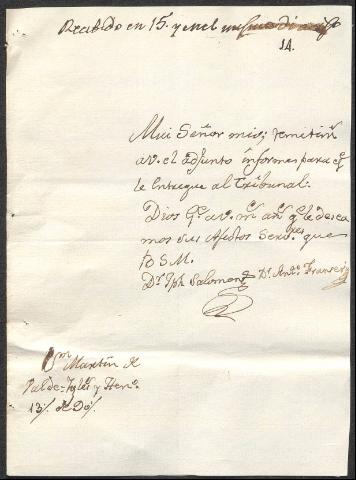 Recibido en 15. y en el mismo di
14.
Mui Señor mio; remitim
a v. el adjunto informe para q̃
le Entregue al Tribunal.
Dios g.e a v. m.s an.s q.e le desea
mos sus Afectos Serv.res que
B S. M.
D.r Jph Salomon D.n Ant.o Franseri
S.n Martin de
Valde-Iglēs y Hen.o
13/. de D